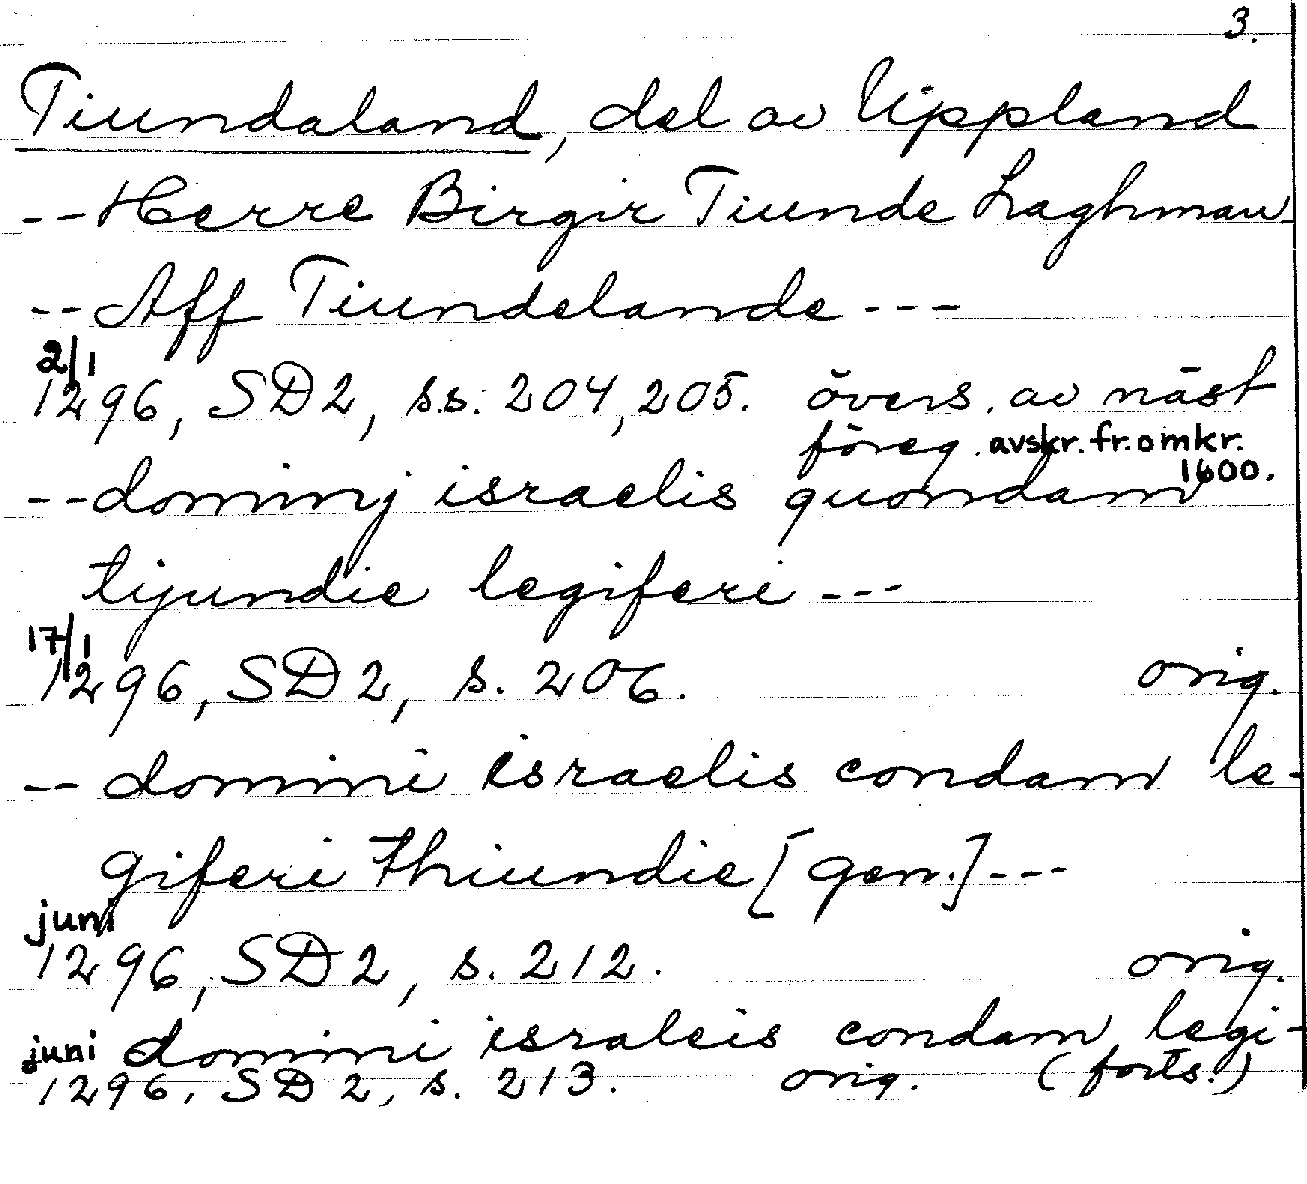 3.
Tiundaland, del av Uppland
-- Herre Birgir Tiunde Laghman
-- Aff Tiundelande ---
2/1
1296, SD2, s.s. 204, 205. övers. av näst
föreg. avskr. fr. omkr.
1600.
-- dominj israelis quondam
tijundie legiferi ---
17/1
1296, SD2, s. 206. orig.
-- domini israelis condam le-
giferi thiundie [gen.] ---
juni
1296, SD2, s. 212. orig.
domini israleis condam legi-
juni
1296, SD2, s. 213. orig. (forts.)